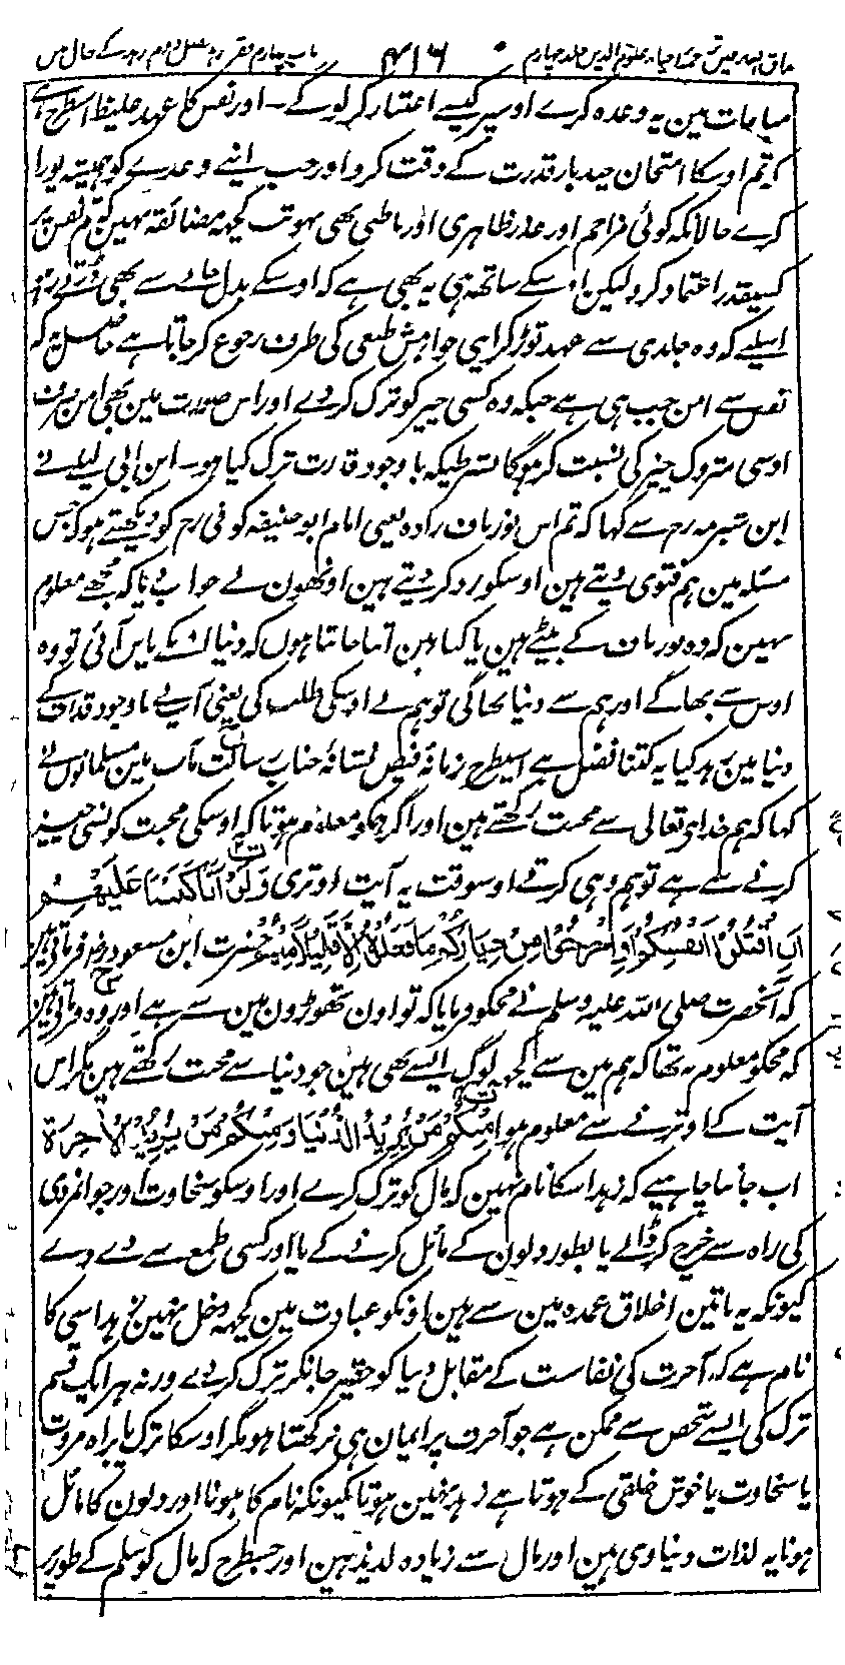 مذاق العارفین ترجمہ احیاء علوم الدین جلد چہارم ۴۱۶ باب چہارم فقر و زہد فصل دوم زہد کے حال میں
مباحات مین یہ وعدہ کرے اوسپر کیسے اعتبار کر لوگے۔ اور نفس کا عہد غلیظ اسطرح ہے
کہ تم اوسکا امتحان چند بار قدرت کے وقت کرو اور جب اپنے وعدے کو ہمیشہ پورا
کرے حالانکہ کوئی مزاحم اور عذر ظاہری اور باطنی بھی نہو تب کچھہ مضائقہ نہین کہ تم نفس پر
کسیقدر اعتماد کرو لیکن اوسکے ساتھہ ہی یہ بھی ہے کہ اوسکے بدل جانے سے بھی ڈرتے رہو
اسلیے کہ وہ جلدی سے عہد توڑ کر اپنی خواہش طبعی کی طرف رجوع کر جاتا ہے حاصل یہ کہ
نفس سے امن جب ہی ہے جبکہ وہ کسی چیز کو ترک کر دے اور اس صورت مین بھی امن صرف
اوسی متروک چیز کی نسبت کر ہوگا بشرطیکہ با وجود قدرت ترک کیا ہو۔ ابن ابی لیلے نے
ابن شبرمہ رح سے کہا کہ تم اس نوربان زادہ یعنی امام ابو حنیفہ کوفی رح کو دیکھتے ہو کہ جس
مسئلہ مین ہم فتوی دیتے ہین اوسکو رد کر دیتے ہین اونھون نے جواب دیا کہ مجھے معلوم
نہین کہ وہ نوربان کے بیٹے ہین یا کیا ہین اتنا جانتا ہوں کہ دنیا انکے پاس آئی تو وہ
اوس سے بھاگے اور ہم سے دنیا بھاگی تو ہم نے اوسکی طلب کی یعنی آپ نے با وجود قدرت کے
دنیا مین زہد کیا یہ کتنا فضل ہے اسیطرح زمانۂ فیض نشانۂ جناب رسالت مآب مین مسلمانوں نے
کہا کہ ہم خداے تعالی سے محبت رکھتے ہین اور اگر ہمکو معلوم ہوتا کہ اوسکی محبت کونسی چیز
کرنے سے ہے تو ہم وہی کرتے اوسوقت یہ آیت اوتری وَلَوْ اَنَّا كَتَبْنَا عَلَيْهِمْ
اَنِ اقْتُلُوْا اَنْفُسَكُمْ اَوِ اخْرُجُوْا مِنْ دِيَارِكُمْ مَا فَعَلُوْهُ اِلَّا قَلِيْلٌ مِّنْهُمْ حضرت ابن مسعود رض فرماتے ہین
کہ آنحضرت صلی اللہ علیہ وسلم نے مجھکو فرمایا کہ تو اون تھوڑون مین سے ہے اور وہ فرماتے ہین
کہ مجھکو معلوم نہ تھا کہ ہم مین سے کچھہ لوگ ایسے بھی ہین جو دنیا سے محبت رکھتے ہین مگر اس
آیت کے اوترنے سے معلوم ہوا مِنْكُمْ مَنْ يُرِيْدُ الدُّنْيَا وَمِنْكُمْ مَنْ يُرِيْدُ الْاٰخِرَةَ
اب جاننا چاہیے کہ زہد اسکا نام نہین کہ مال کو ترک کرے اور اوسکو سخاوت اور جوانمردی
کی راہ سے خرچ کر ڈالے یا بطور دلون کے مائل کرنے کے یا اور کسی طمع سے دے دے
کیونکہ یہ باتین اخلاق عمدہ مین سے ہین اونکو عبادت مین کچھہ دخل نہین زہد اسی کا
نام ہے کہ آخرت کی نفاست کے مقابل دنیا کو حقیر جانکر ترک کر دے ورنہ ہر ایک قسم
ترک کی ایسے شخص سے ممکن ہے جو آخرت پر ایمان ہی نرکھتا ہو مگر اوسکا ترک یا براہ مروت
یا سخاوت یا خوش خلقی کے ہوتا ہے زہد نہین ہوتا کیونکہ نام کا ہونا اور دلون کا مائل
ہونا یہ لذات دنیاوی ہین اور مال سے زیادہ لذیذ ہین اور جسطرح کہ مال کو سلم کے طور پر